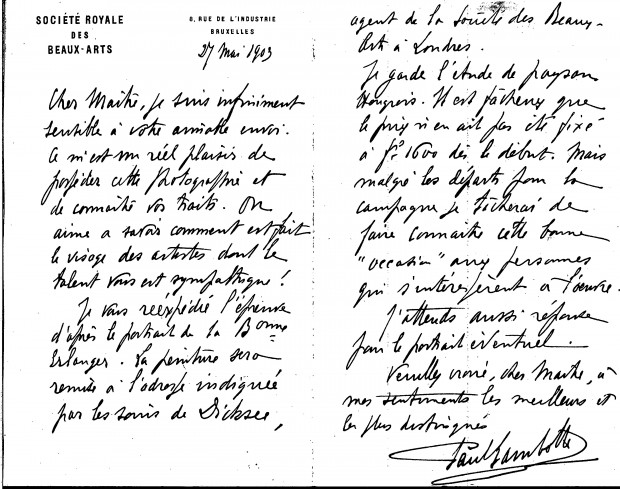 SOCIÉTÉ ROYALE
DES
BEAUX-ARTS
8, RUE DE L'INDUSTRIE
BRUXELLES
27 Mai 1903
Cher Maître, je suis infiniment
sensible à votre aimable envoi.
Ce m'est un réel plaisir de
posséder cette photographie et
de connaître vos traits. On
aime a savoir comment est fait
le visage des artistes dont le
talent vous est sympathique !
Je vous réexpédie l'épreuve
d'après le portrait de la Bonne
Erlanger. La peinture sera
remise à l'adresse indiquée
par les soins de Dicksee,
agent de la Société des Beaux-
Arts à Londres.
Je garde l'étude de paysan
Hongrois. Il est fâcheux que
le prix n'en ait pas été fixé
à frs 1600 dès le début. Mais
malgré les départs pour la
campagne je tâcherai de
faire connaître cette bonne
"occasion" aux personnes
qui s'intéressent à l'oeuvre.
J'attends aussi réponse
pour le portrait éventuel.
Veuillez croire, cher Maître, à
mes sentiments les meilleurs et
les plus distingués
Paul Lambotte